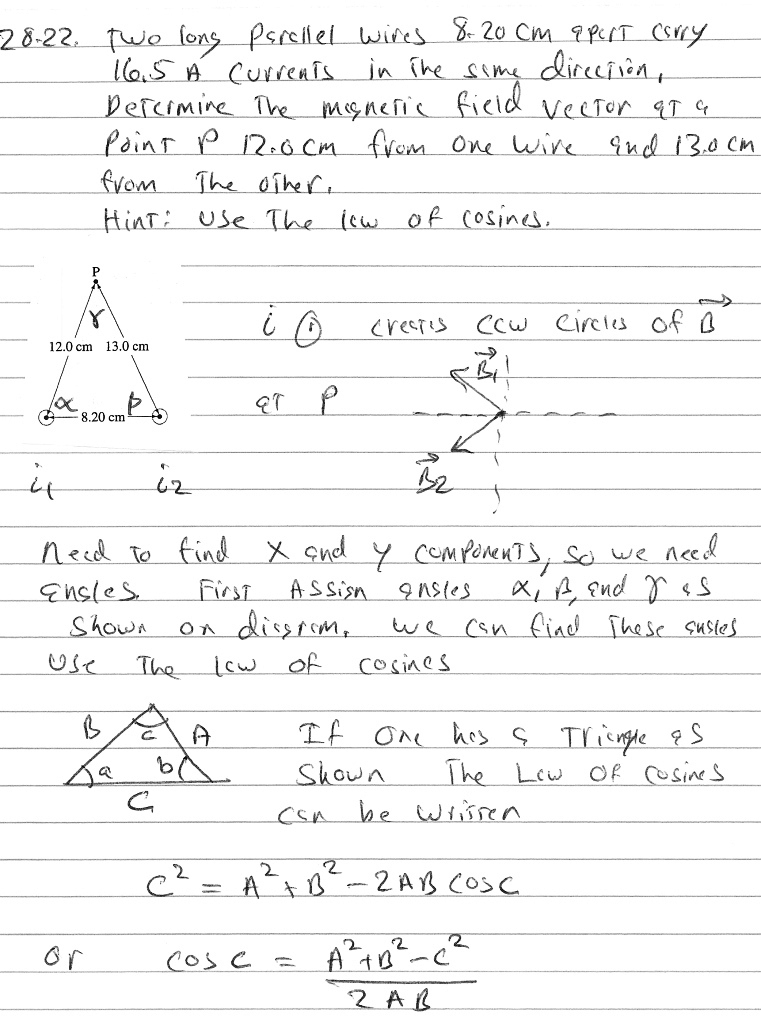 28-22. Two long Parallel Wires 8.20 cm apart carry
16.5 A currents in the same direction,
Determine The magnetic field vector at a
Point P 12.0 cm from one wire and 13.0 cm
from The other.
Hint: Use The law of cosines.
P
γ
12.0 cm 13.0 cm
α β
8.20 cm
i1 i2
i ① creates ccw circles of B⃗
at P
B⃗1
B⃗2
need to find x and y components, so we need
angles. First Assign angles α, β, and γ as
shown on diagram, we can find these angles
Use The law of cosines
B c A
a b
C
If one has a Triangle as
Shown The Law Of cosines
can be written
C² = A² + B² - 2AB cos c
or cos c = (A² + B² - C²) / 2AB